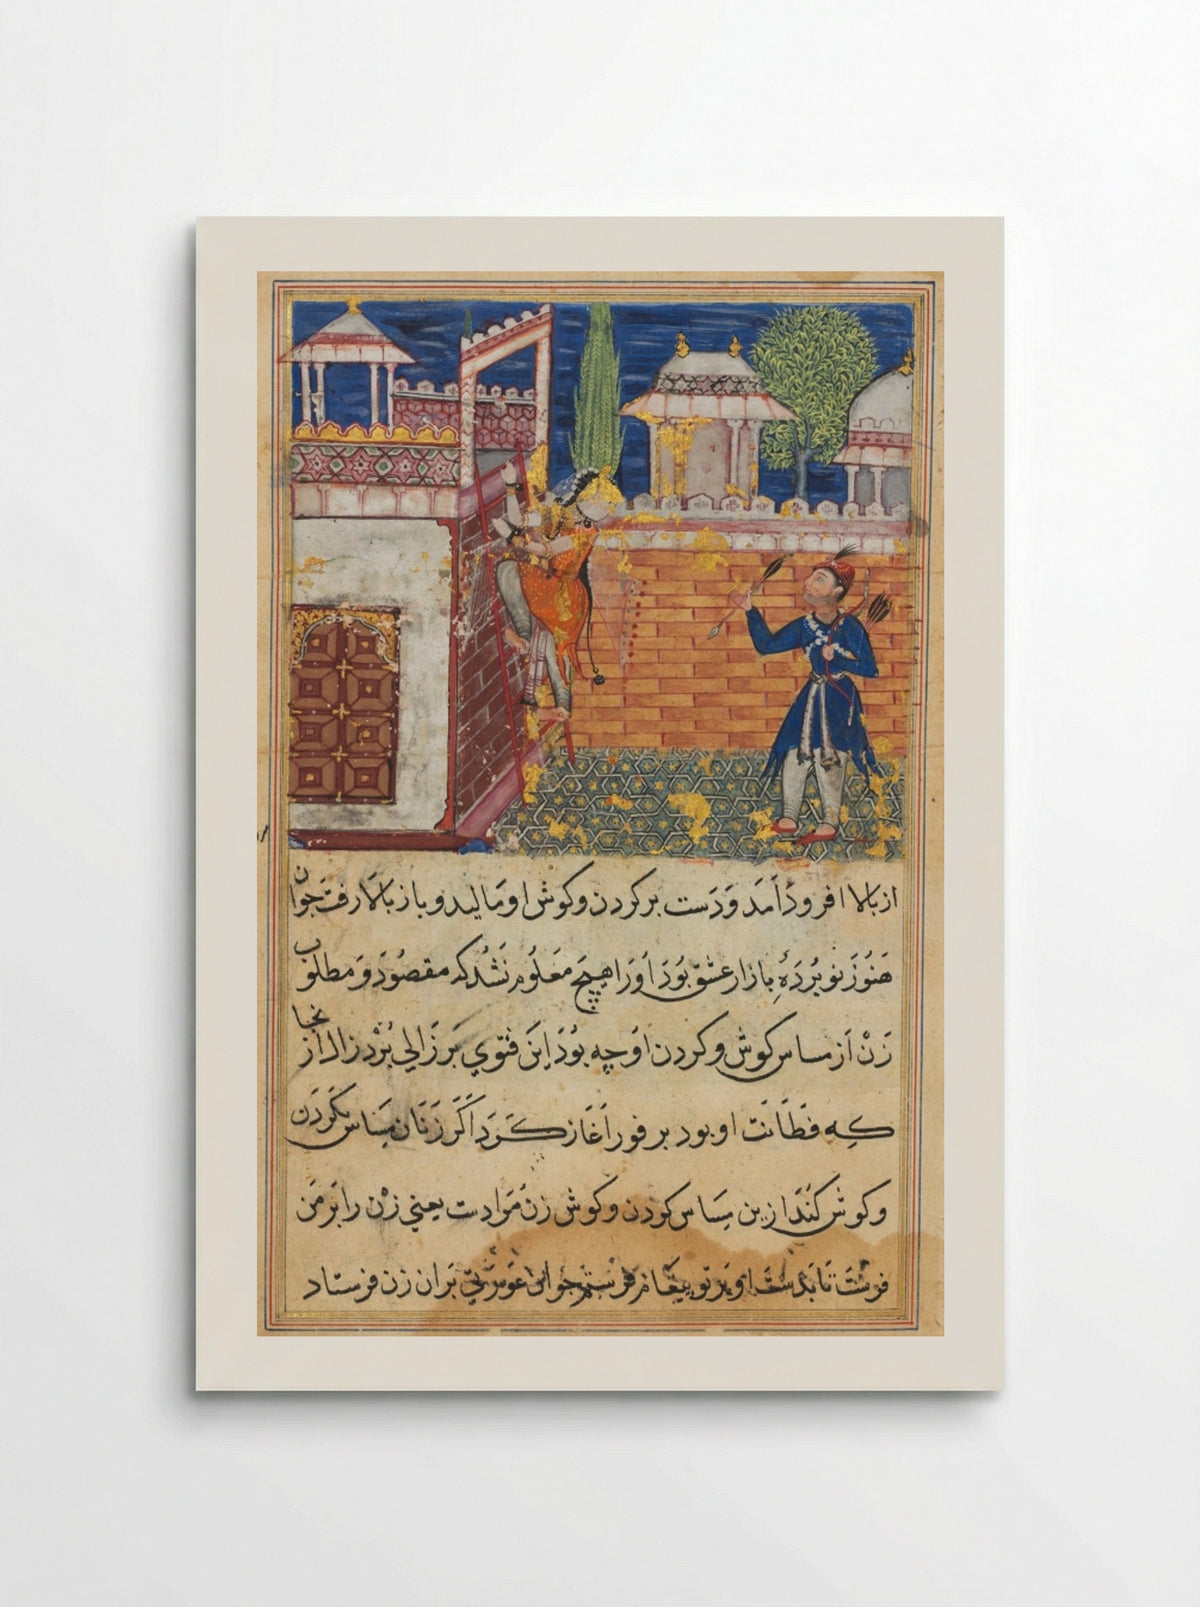 از بالا افرود آمد و دست بر کردن و کوش او مالید و باز بالا رفت جوان
هنوز نو بردهٔ بازار عشق بود او را هیچ معلوم نشد که مقصود و مطلوب
زن از مساس کوش و کردن او چه بود این فتوی بر زالی برد زال از آنجا
که فطانت او بود بر فور آغاز کرد اکر زنان مساس بکردن
و کوش کنند ازین مساس کردن و کوش زن مرادست یعنی زن را بر من
فرست تا بدست او بر تو پیغام فرستم جوان عورتی بران زن فرستاد